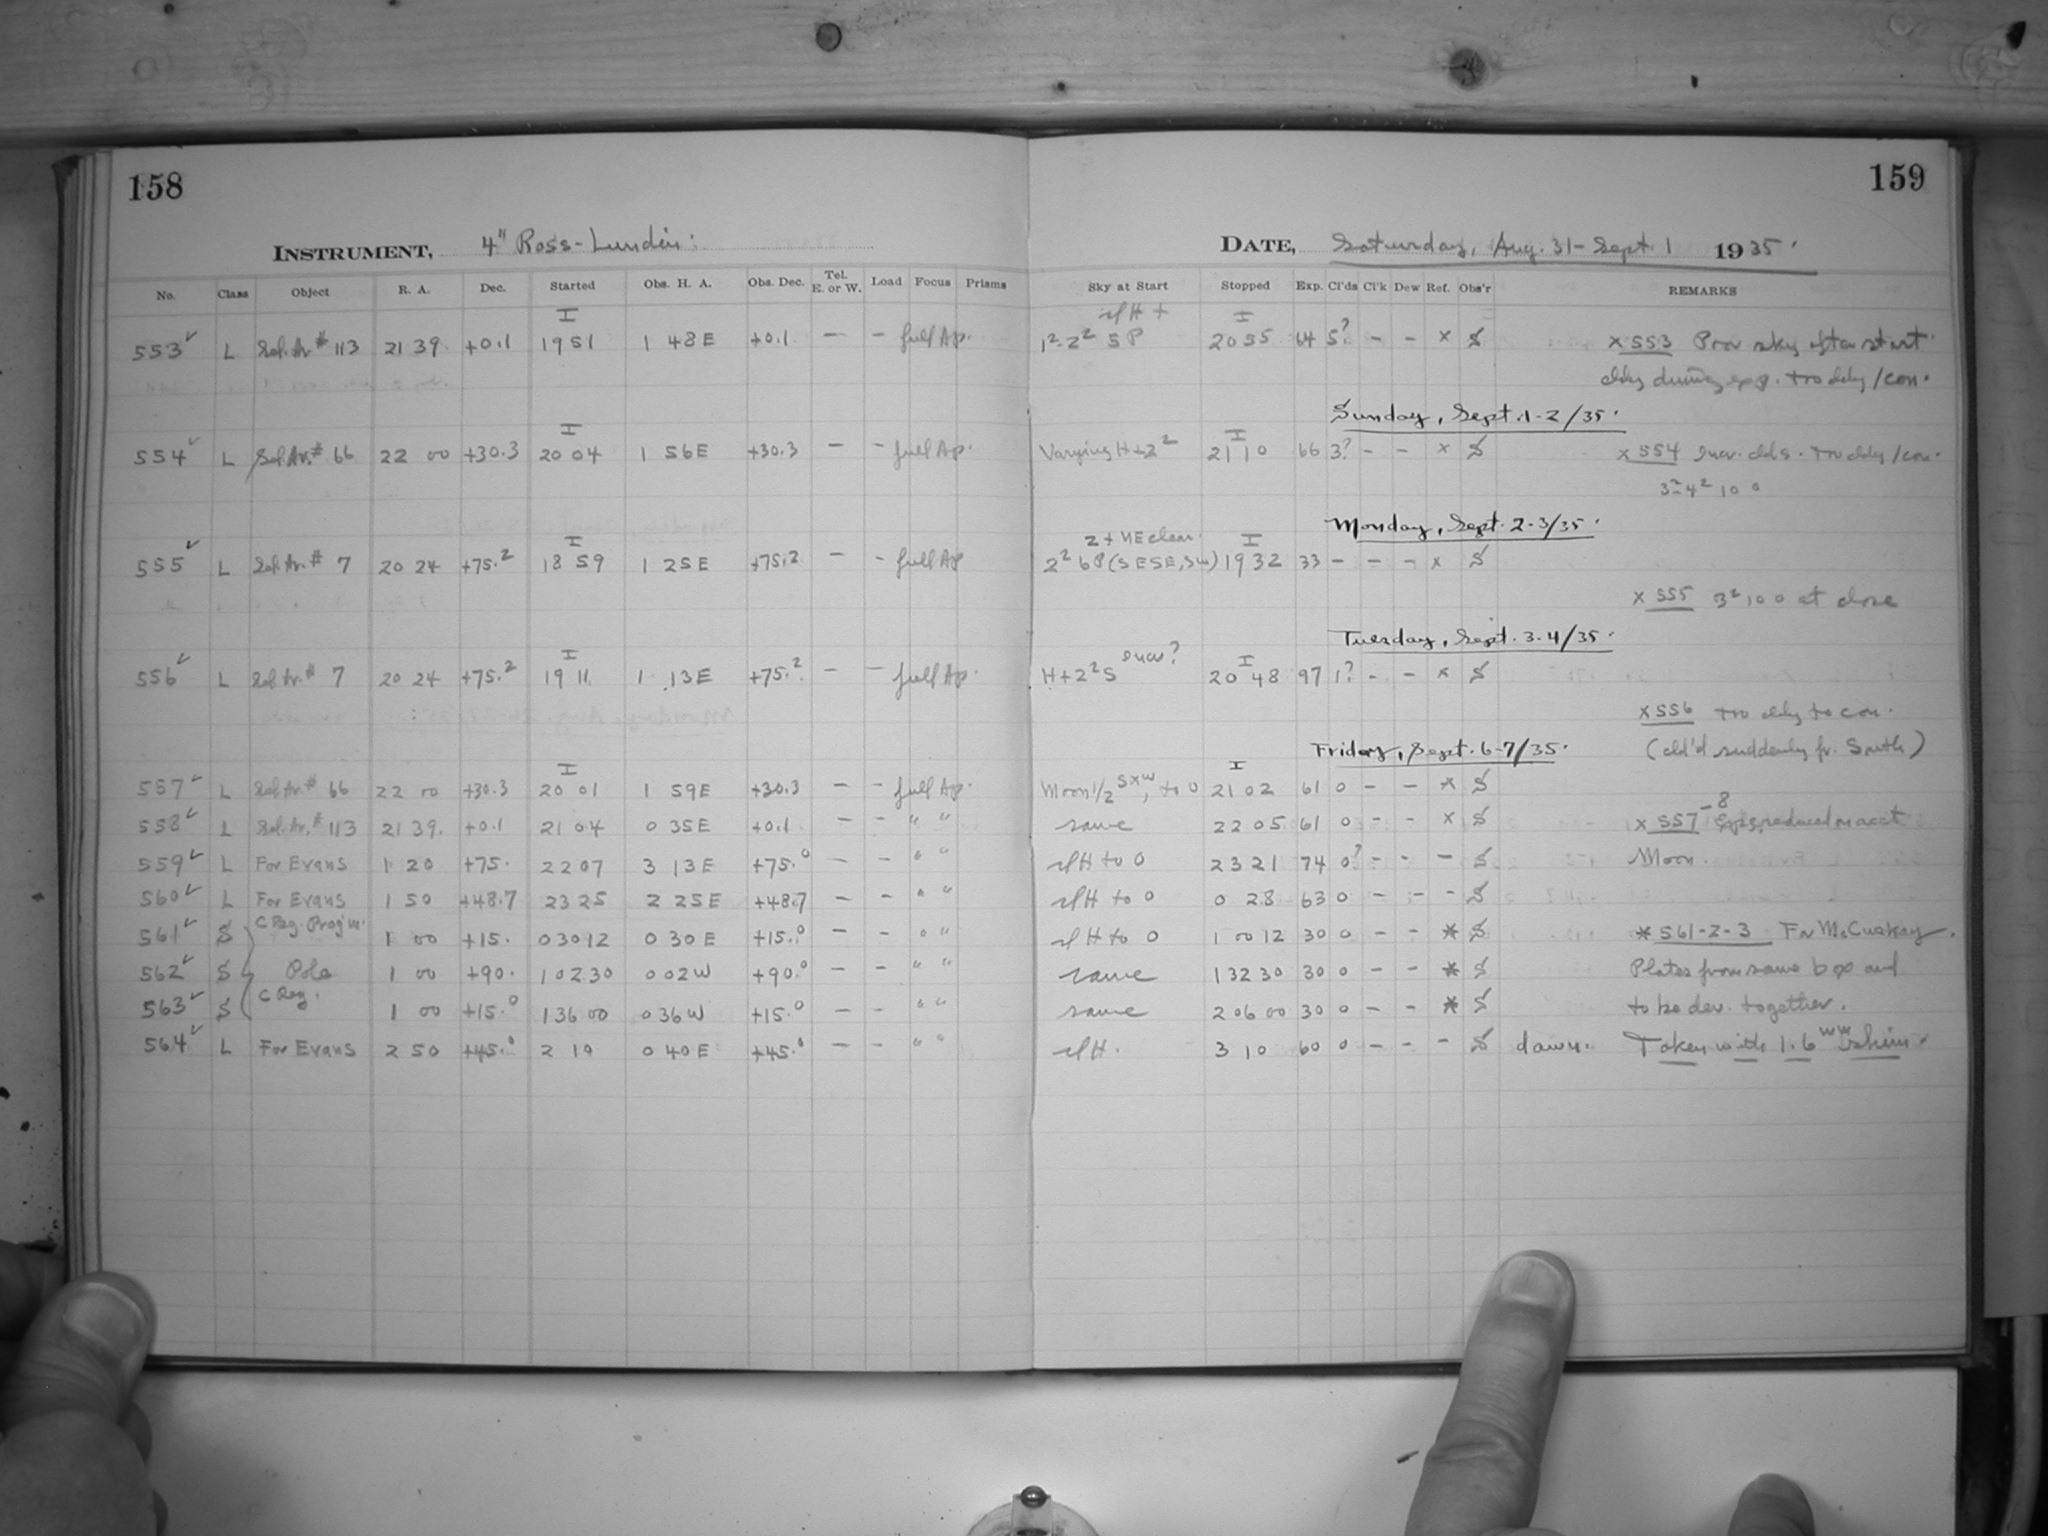 158
159
INSTRUMENT, 4" Ross-Lundin.
DATE, Saturday, Aug. 31 - Sept. 1 1935.
No. Class Object R. A. Dec. Started Obs. H. A. Obs. Dec. Tel. E. or W. Load Focus Prisms Sky at Start Stopped Exp. Cl'ds Cl'k Dew Ref. Obs'r REMARKS
I slH + I
553 ✓ L Sel. Ar. # 113 21 39. +0.1 19 51 1 48 E +0.1 — - full Ap. 1²-2² 5 P 20 55 64 5? - - x S x 553 Poor sky after start.
cldy during exp. too cldy / con.
Sunday, Sept. 1-2/35.
I I
554 ✓ L Sel. Ar. # 66 22 00 +30.3 20 04 1 56 E +30.3 — - full Ap. Varying H+2² 21 10 66 3? - - x S x 554 Incr. clds. too cldy / con.
3²-4² 10 0
Monday, Sept. 2-3/35.
I Z + NE clear. I
555 ✓ L Sel. Ar. # 7 20 24 +75.2 18 59 1 25 E +75.2 — - full Ap 2² 6P (S E SE, SW) 19 32 33 - - - x S
x 555 3² 10 0 at close
Tuesday, Sept. 3-4/35.
I incr? I
556 ✓ L Sel. Ar. # 7 20 24 +75.2 19 11 1 13 E +75.2 — - full Ap. H+2² S 20 48 97 1? - - x S
x 556 too cldy to con.
Friday, Sept. 6-7/35. (cld'd suddenly fr. South)
I I
557 ✓ L Sel. Ar. # 66 22 00 +30.3 20 01 1 59 E +30.3 — - full Ap. Moon 1/2 SxW, to 0 21 02 61 0 - - x S
558 ✓ L Sel. Ar. # 113 21 39. +0.1 21 04 0 35 E +0.1 — - " " same 22 05 61 0 - - x S x 557-8 Exps. reduced on acct
559 ✓ L For Evans 1 20 +75. 22 07 3 13 E +75.0 — - " " slH to 0 23 21 74 0? - - - S Moon.
560 ✓ L For Evans 1 50 +48.7 23 25 2 25 E +48.7 — - " " slH to 0 0 28 63 0 - - - S
561 ✓ S C Reg. Prog'm. 1 00 +15. 0 30 12 0 30 E +15.0 — - " " slH to 0 1 00 12 30 0 - - * S * 561-2-3 For McCuskey.
562 ✓ S Pole 1 00 +90. 1 02 30 0 02 W +90.0 — - " " same 1 32 30 30 0 - - * S Plates from same box and
563 ✓ S C Reg. 1 00 +15.0 1 36 00 0 36 W +15.0 — - " " same 2 06 00 30 0 - - * S to be dev. together.
564 ✓ L For Evans 2 50 +45.0 2 10 0 40 E +45.0 — - " " slH. 3 10 60 0 - - - S dawn. Taken with 1.6 mm shim.